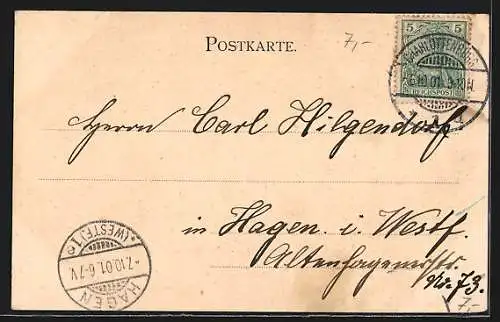 7,-
POSTKARTE.
5 5
REICHSPOST
CHARLOTTENBURG
6.10.01.
Herrn Carl Hilgendorf
in Hagen i. Westf.
Altenhagenerstr.
No. 73.
7,-
HAGEN
*(WESTF.) 1c
-7.10.01. 6-7V.